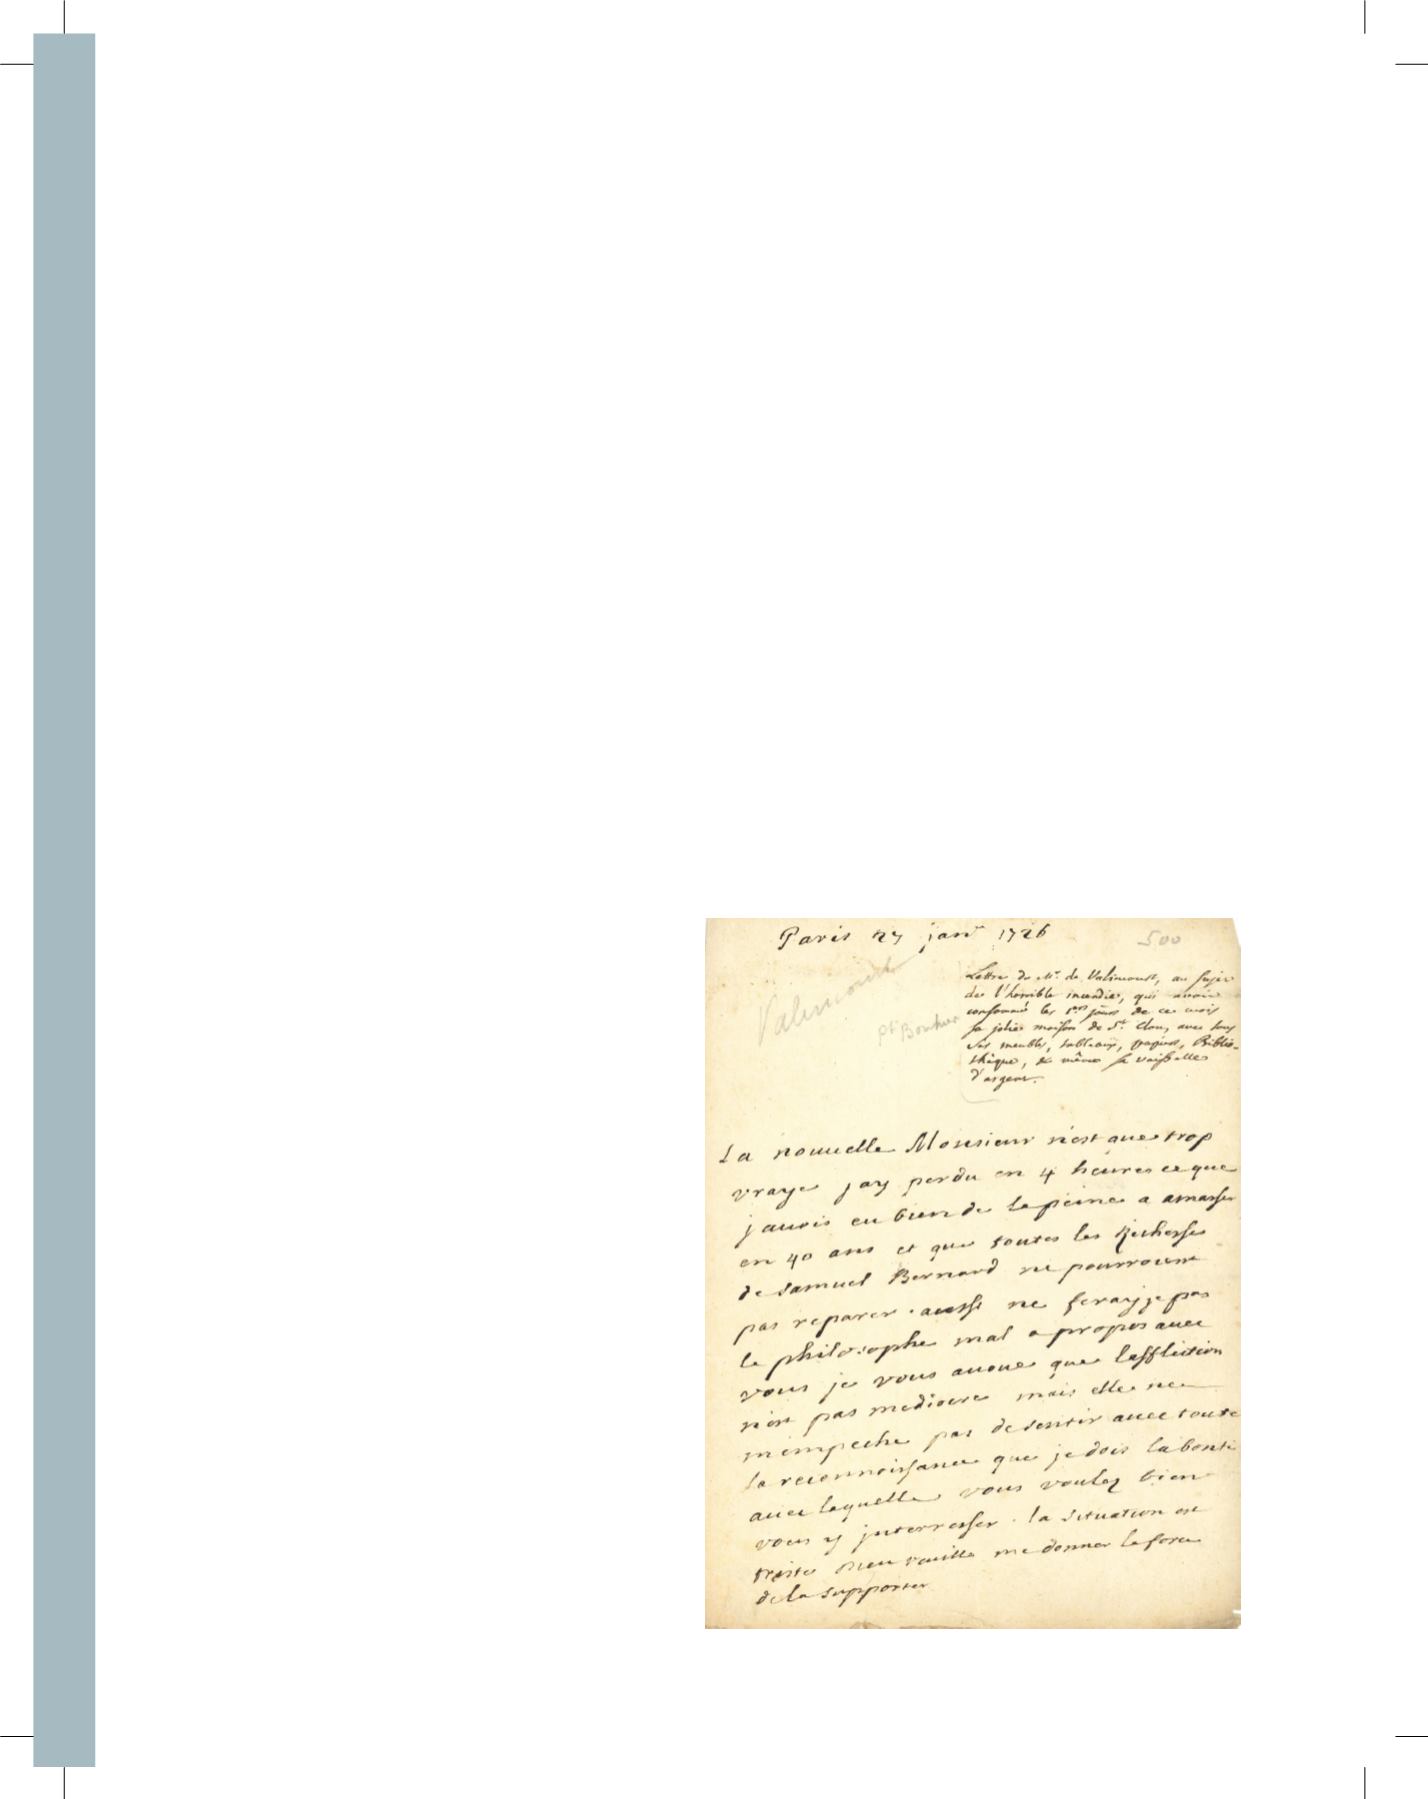 Paris 27 janr 1726
500
Lettre de Mr de Valincourt, au sujet
de l'horrible incendie, qui avoit
consommé les 1ers jours de ce mois
sa jolie maison de St Clou, avec tous
ses meubles, tableaux, papiers, Biblio-
théque, & même sa vaisselle
d'argent.
Valincourt
Pt Bouhier
La nouuelle Monsieur n'est que trop
vraye jay perdu en 4 heures ce que
jauois eu bien de la peine a amasser
en 40 ans et que toutes les Richesses
de Samuel Bernard ne pourroient
pas reparer. aussi ne feray je pas
le philosophe mal a propos auec
vous je vous auoue que laffliction
n'est pas mediocre mais elle ne
m'empeche pas de sentir auec toute
la reconnoissance que je dois la bonté
auec laquelle vous voulez bien
vous y jnterresser. la situation est
triste Dieu veuille me donner la force
de la supporter